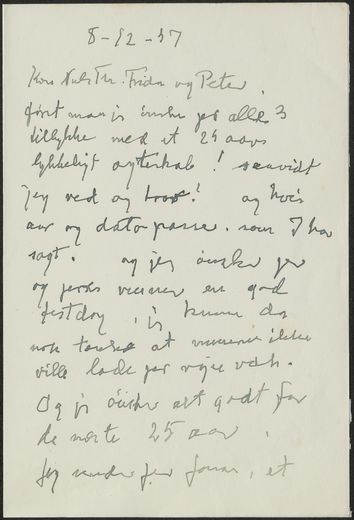 8-12-37
Kære Nuls Th. Frida og Peter,
først maa jeg ønske jer alle 3
tillykke med et 25 aars
lykkeligt ægteskab! saavidt
jeg ved og tror! og hvis
aar og dato passe. som I har
sagt. og jeg ønsker jer
og jeres venner en god
festdag, jeg kunne da
nok tænke at vennerne ikke
ville lade jer rejse væk.
Og jeg ønsker alt godt for
de næste 25 aar.
Jeg sender jer, et